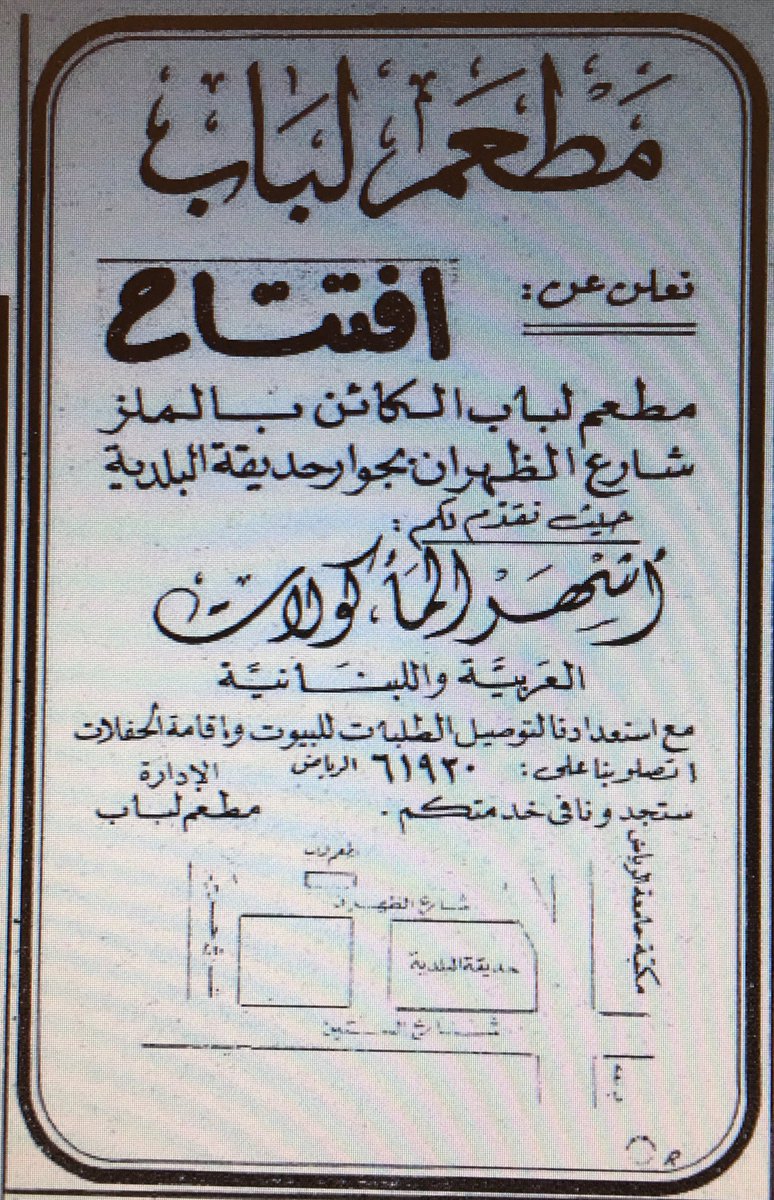 مطعم لباب
تعلن عن :
افتتاح
مطعم لباب الكائن بالملز
شارع الظهران بجوار حديقة البلدية
حيث نقدم لكم :
أشهر المأكولات
العربية واللبنانية
مع استعدادنا لتوصيل الطلبات للبيوت واقامة الحفلات
اتصلوبنا على : ٦١٩٢٠ الرياض
الإدارة
ستجدونا في خدمتكم .
مطعم لباب
مكتبة جامعة الرياض
شارع الظهران
حديقة البلدية
شارع الستين
R